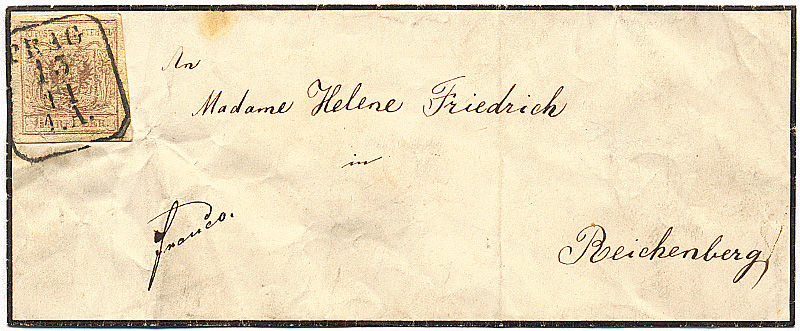 PRAG
13
11
1.A.
An
Madame Helene Friedrich
in
franco.
Reichenberg